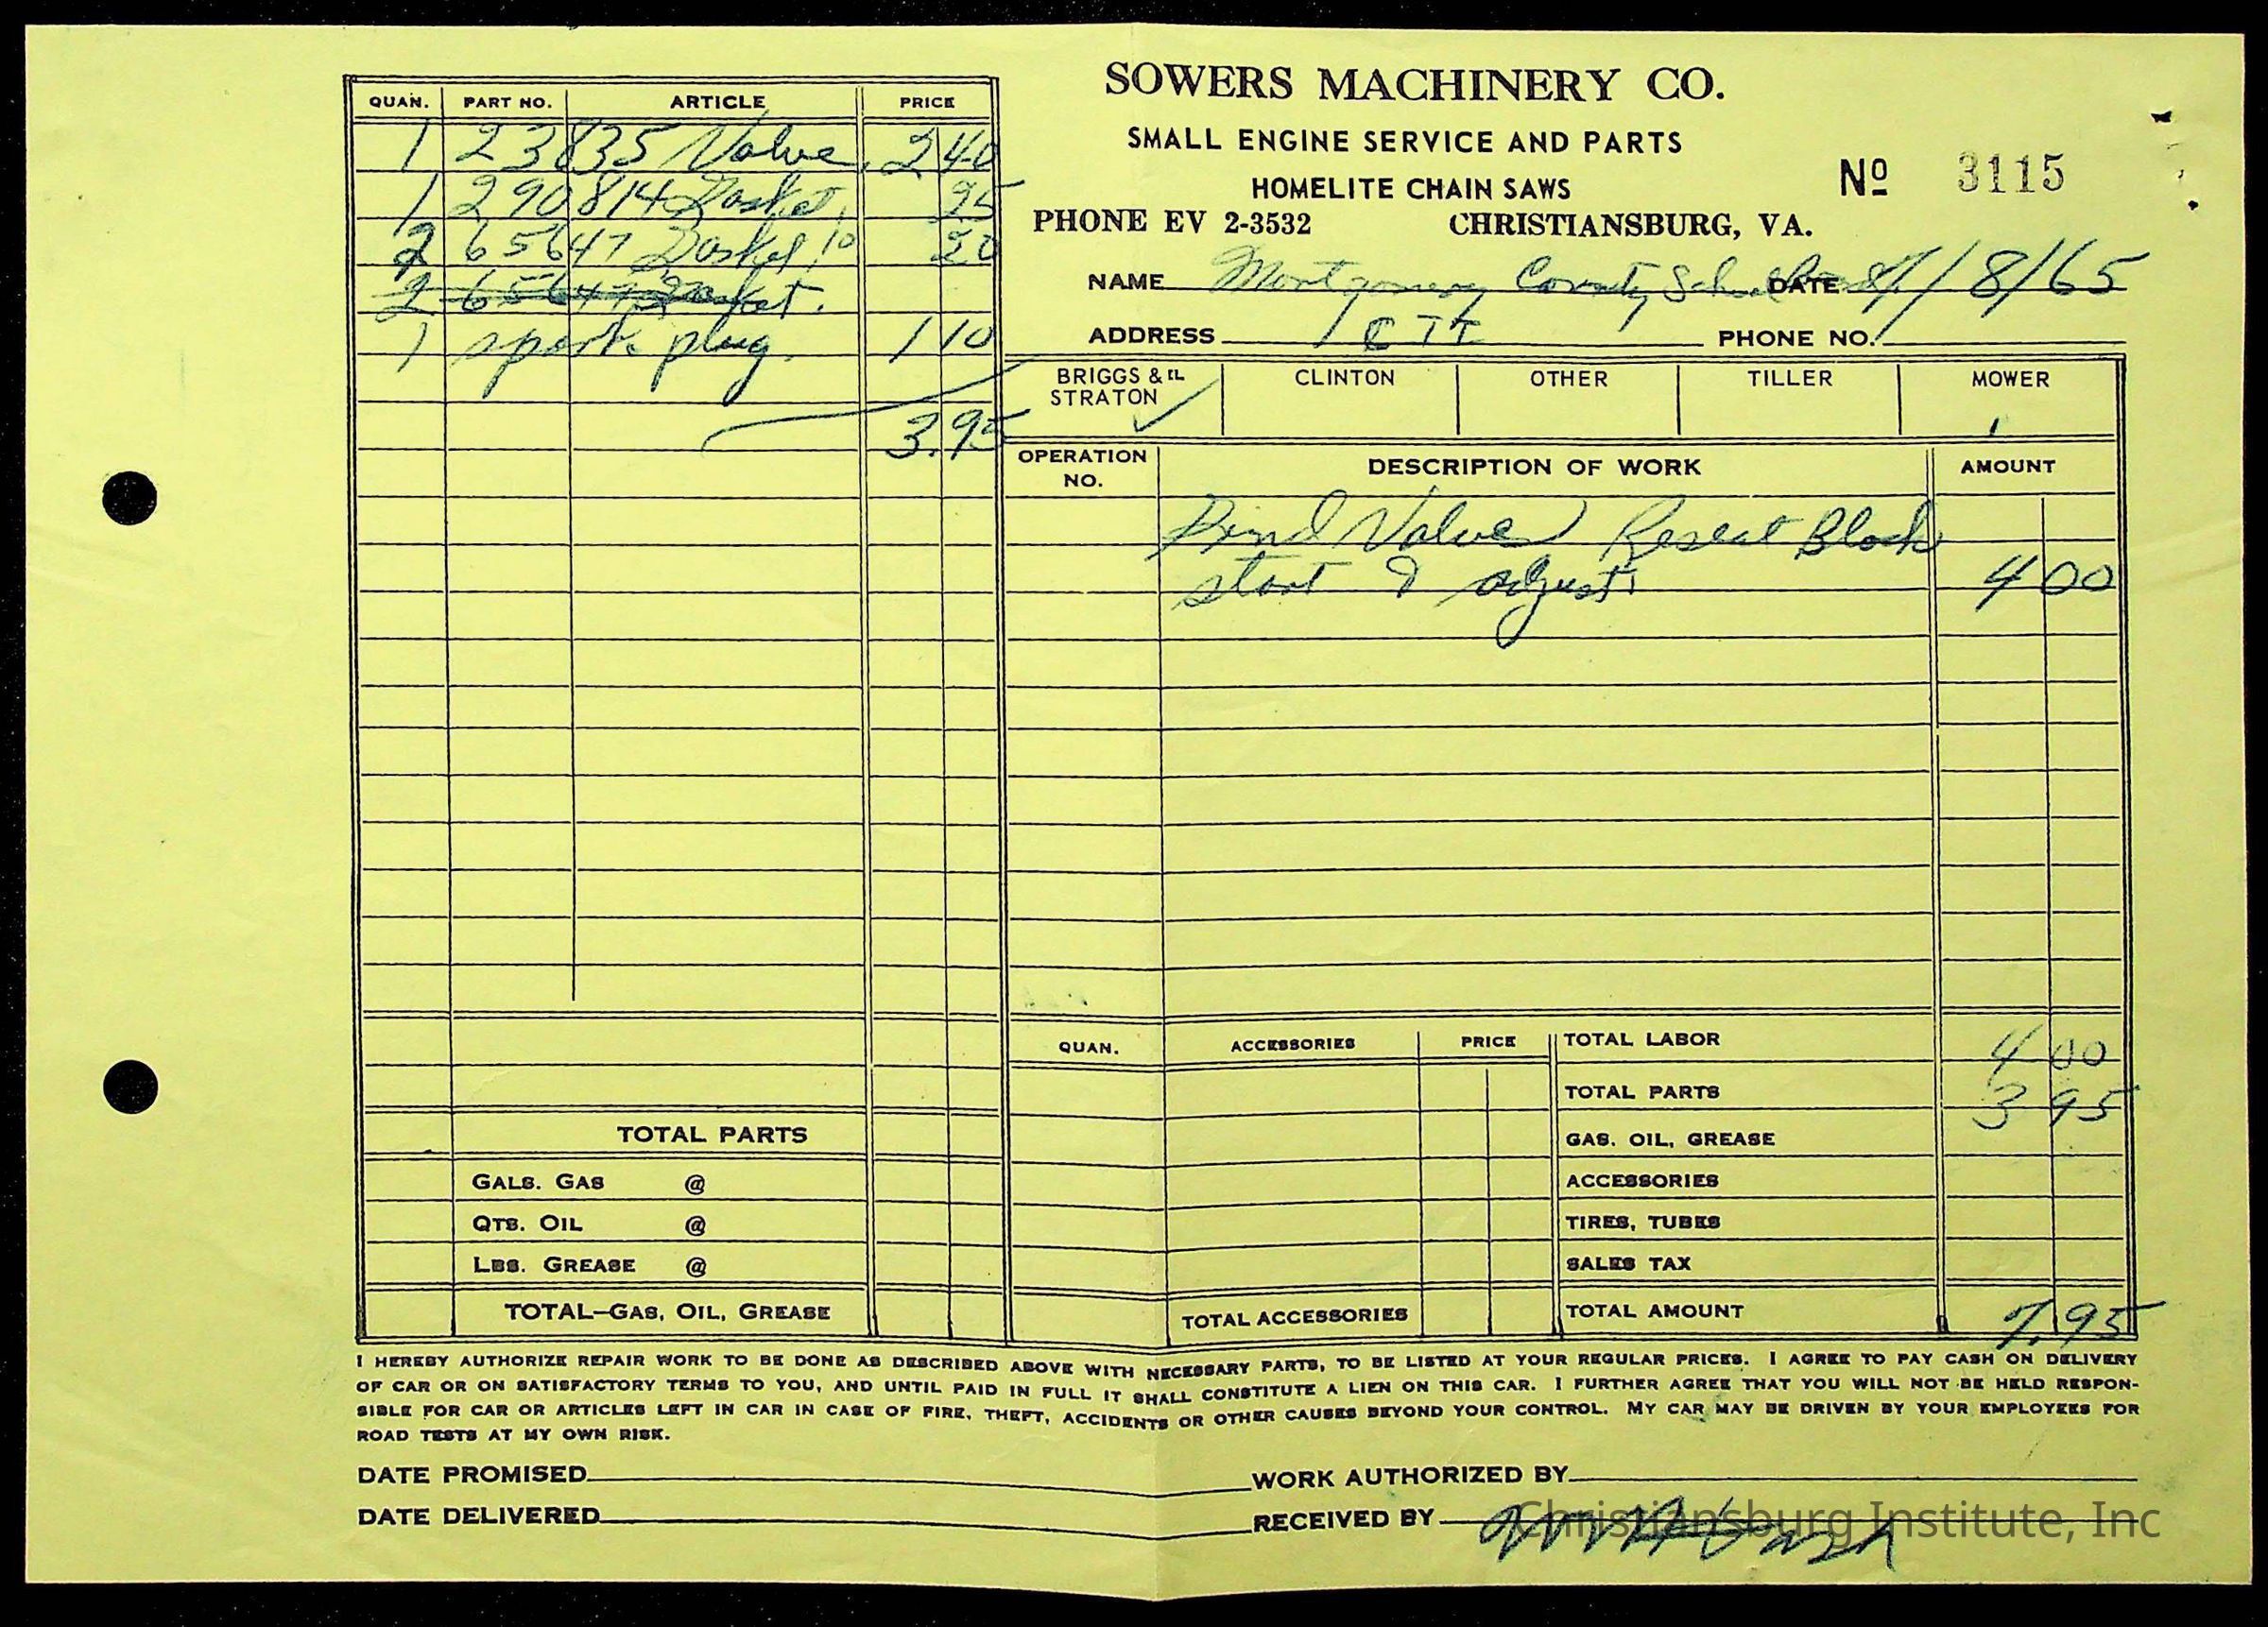 QUAN. PART NO. ARTICLE PRICE
1 23835 Valve. 2 40
1 290814 Gasket. 25
2 65647 Gasket 10 20
2 65647 Gasket.
1 spark plug. 1 10
3.95
SOWERS MACHINERY CO.
SMALL ENGINE SERVICE AND PARTS
HOMELITE CHAIN SAWS
Nº 3115
PHONE EV 2-3532 CHRISTIANSBURG, VA.
NAME Montgomery County School DATE /8/65
ADDRESS PHONE NO.
BRIGGS & STRATON ✓ CLINTON OTHER TILLER MOWER
OPERATION NO. DESCRIPTION OF WORK AMOUNT
Valves Reseat Block
start & adjust 4 00
QUAN. ACCESSORIES PRICE
TOTAL LABOR 4 00
TOTAL PARTS 3 95
GAS. OIL, GREASE
ACCESSORIES
TIRES, TUBES
SALES TAX
TOTAL AMOUNT 7.95
TOTAL ACCESSORIES
TOTAL PARTS
GALS. GAS @
QTS. OIL @
LBS. GREASE @
TOTAL—GAS, OIL, GREASE
I HEREBY AUTHORIZE REPAIR WORK TO BE DONE AS DESCRIBED ABOVE WITH NECESSARY PARTS, TO BE LISTED AT YOUR REGULAR PRICES. I AGREE TO PAY CASH ON DELIVERY
OF CAR OR ON SATISFACTORY TERMS TO YOU, AND UNTIL PAID IN FULL IT SHALL CONSTITUTE A LIEN ON THIS CAR. I FURTHER AGREE THAT YOU WILL NOT BE HELD RESPON-
SIBLE FOR CAR OR ARTICLES LEFT IN CAR IN CASE OF FIRE, THEFT, ACCIDENTS OR OTHER CAUSES BEYOND YOUR CONTROL. MY CAR MAY BE DRIVEN BY YOUR EMPLOYEES FOR
ROAD TESTS AT MY OWN RISK.
DATE PROMISED WORK AUTHORIZED BY
DATE DELIVERED RECEIVED BY
Christiansburg Institute, Inc